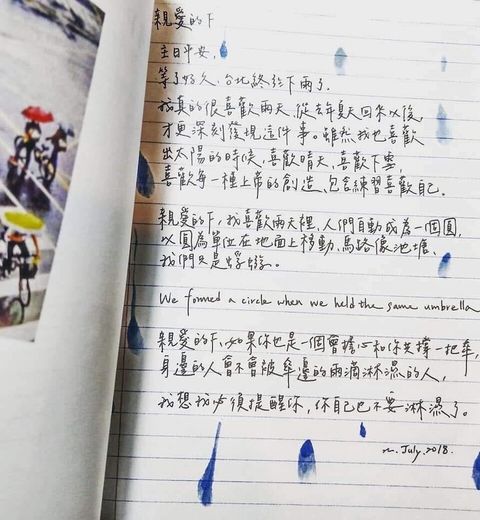 親愛的下
主日平安,
等了好久,台北終於下雨了.
我真的很喜歡雨天,從去年夏天回來以後,
才更深刻發現這件事。雖然我也喜歡
出太陽的時候,喜歡晴天、喜歡下雪,
喜歡每一種上帝的創造、包含練習喜歡自己.
親愛的下,我喜歡雨天裡,人們自動成為一個圓,
以圓為單位在地面上移動、馬路像池塘、
我們只是蜉蝣。
We formed a circle when we held the same umbrella
親愛的下,如果你也是一個會擔心和你共撐一把傘,
身邊的人會不會被傘邊的雨滴淋濕的人,
我想我必須提醒你,你自己也不要淋濕了。
July.2018.